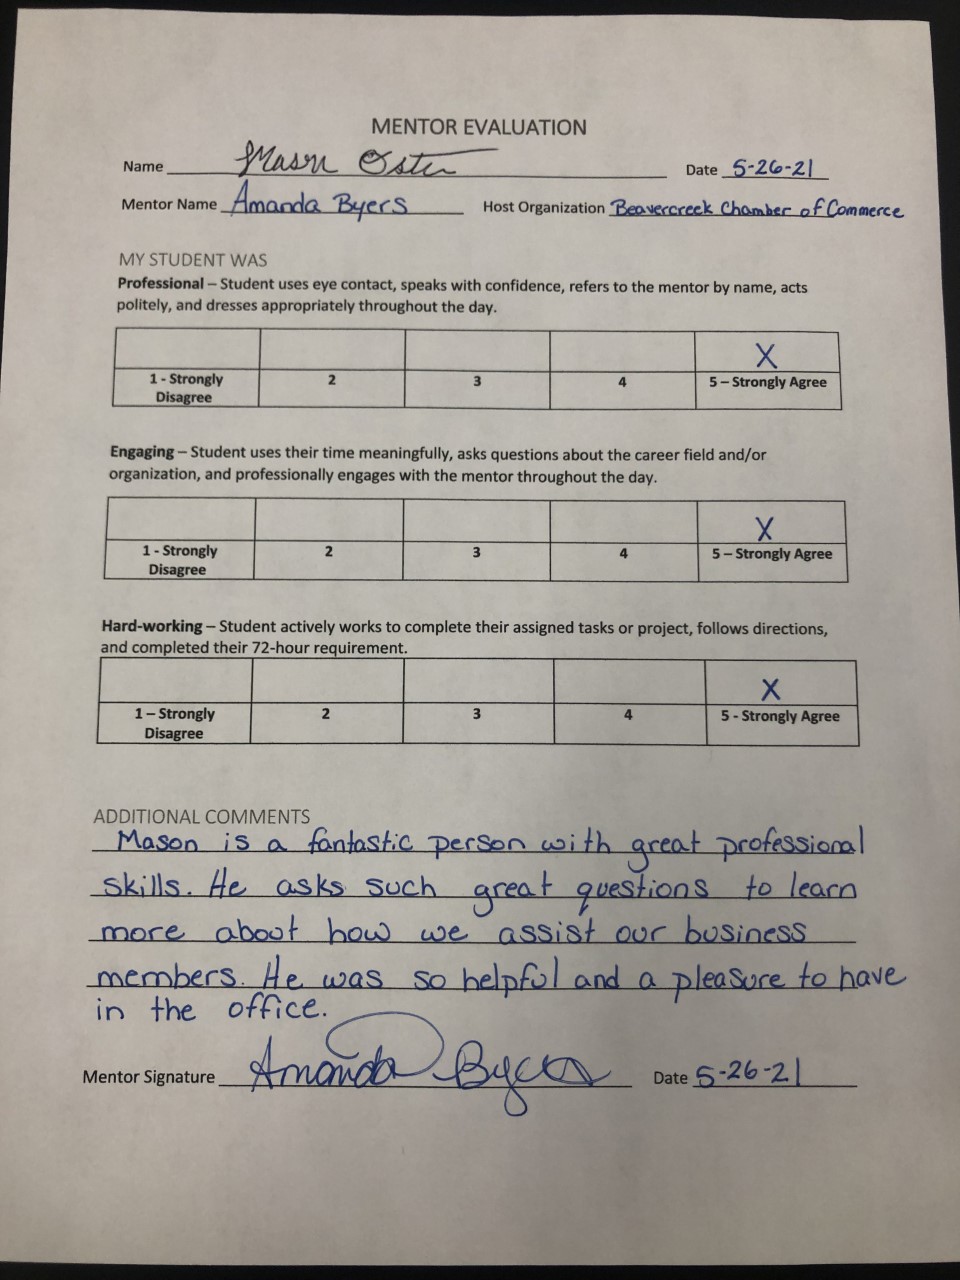 MENTOR EVALUATION
Name Mason Date 5-26-21
Mentor Name Amanda Byers Host Organization Beavercreek Chamber of Commerce
MY STUDENT WAS
Professional – Student uses eye contact, speaks with confidence, refers to the mentor by name, acts
politely, and dresses appropriately throughout the day.
X
1 - Strongly Disagree 2 3 4 5 – Strongly Agree
Engaging – Student uses their time meaningfully, asks questions about the career field and/or
organization, and professionally engages with the mentor throughout the day.
X
1 - Strongly Disagree 2 3 4 5 – Strongly Agree
Hard-working – Student actively works to complete their assigned tasks or project, follows directions,
and completed their 72-hour requirement.
X
1 – Strongly Disagree 2 3 4 5 - Strongly Agree
ADDITIONAL COMMENTS
Mason is a fantastic person with great professional
skills. He asks such great questions to learn
more about how we assist our business
members. He was so helpful and a pleasure to have
in the office.
Mentor Signature Amanda Byers Date 5-26-21